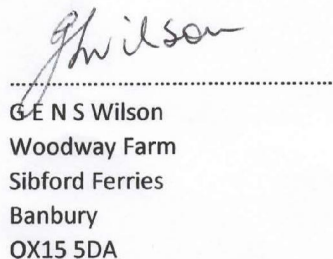 GWilson
G E N S Wilson
Woodway Farm
Sibford Ferries
Banbury
OX15 5DA